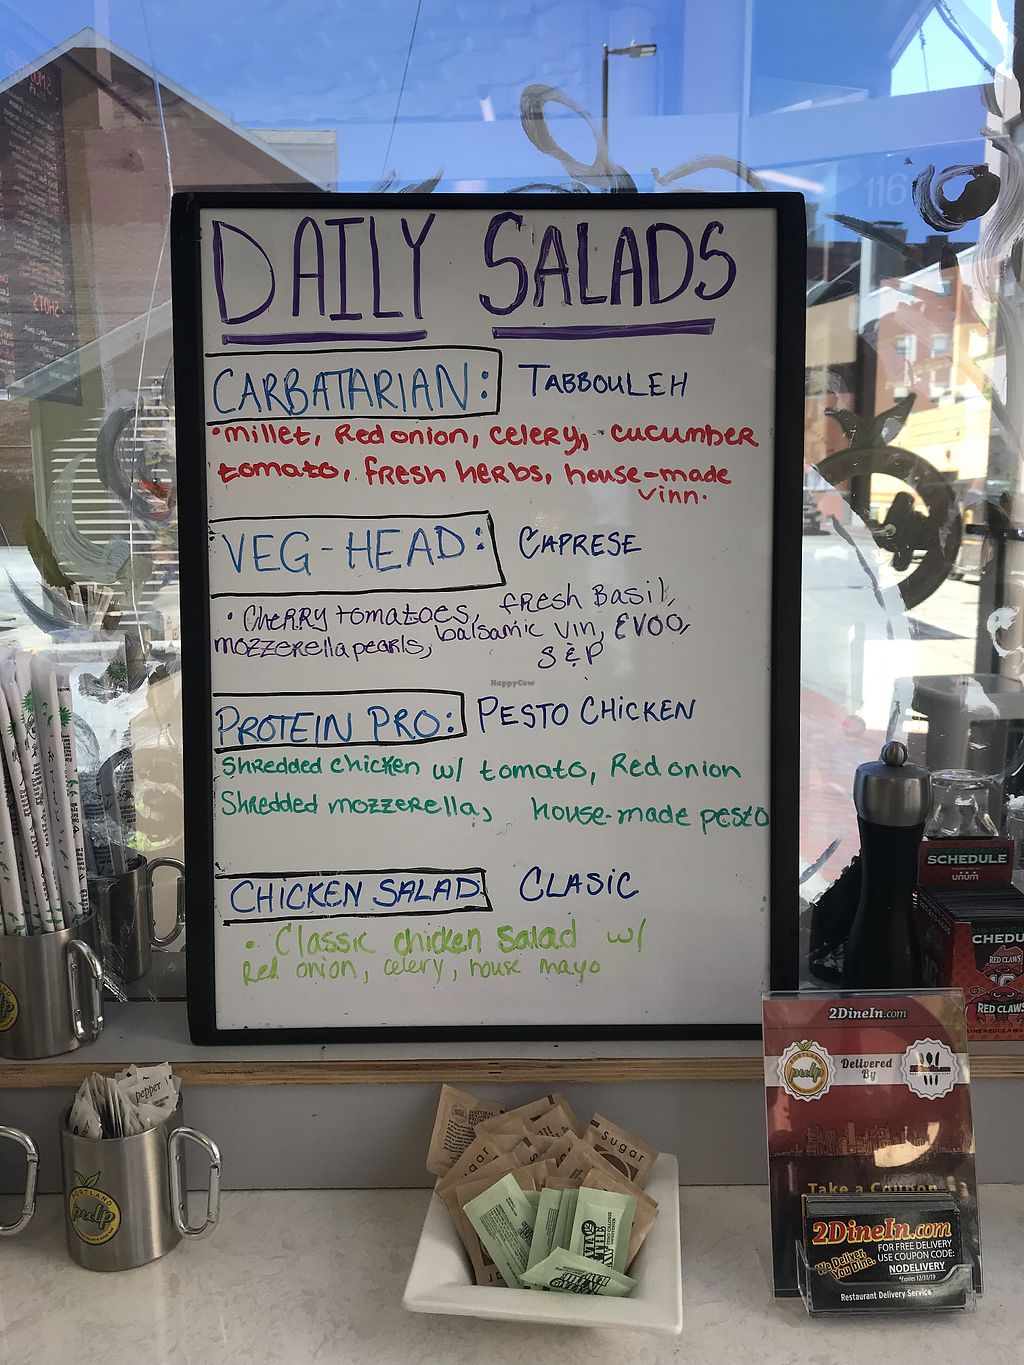 DAILY SALADS
CARBATARIAN: TABBOULEH
• millet, Red onion, celery, cucumber
tomato, fresh herbs, house-made
vinn.
VEG-HEAD: CAPRESE
• Cherry tomatoes, fresh Basil,
mozzerella pearls, balsamic vin, EVOO,
S & P
HappyCow
PROTEIN PRO: PESTO CHICKEN
Shredded chicken w/ tomato, Red onion
Shredded mozzerella, house-made pesto
CHICKEN SALAD CLASIC
• Classic chicken salad w/
Red onion, celery, house mayo
116
SHOTS
SCHEDULE
unum
SCHEDU
RED CLAWS
RED CLAWS
2DineIn.com
Delivered
By
pulp
Take a Coupon
2DineIn.com
We Deliver,
You Dine.
FOR FREE DELIVERY
USE COUPON CODE:
NODELIVERY
*Expires 12/31/19
Restaurant Delivery Service
pepper
PORTLAND
pulp
Sugar
Sugar